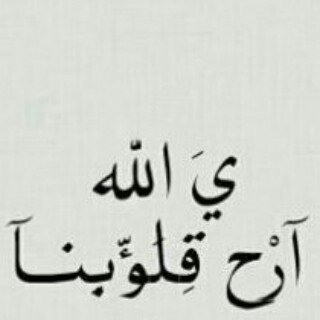 يَ الله
آرْح قِلَوِّبنـآ